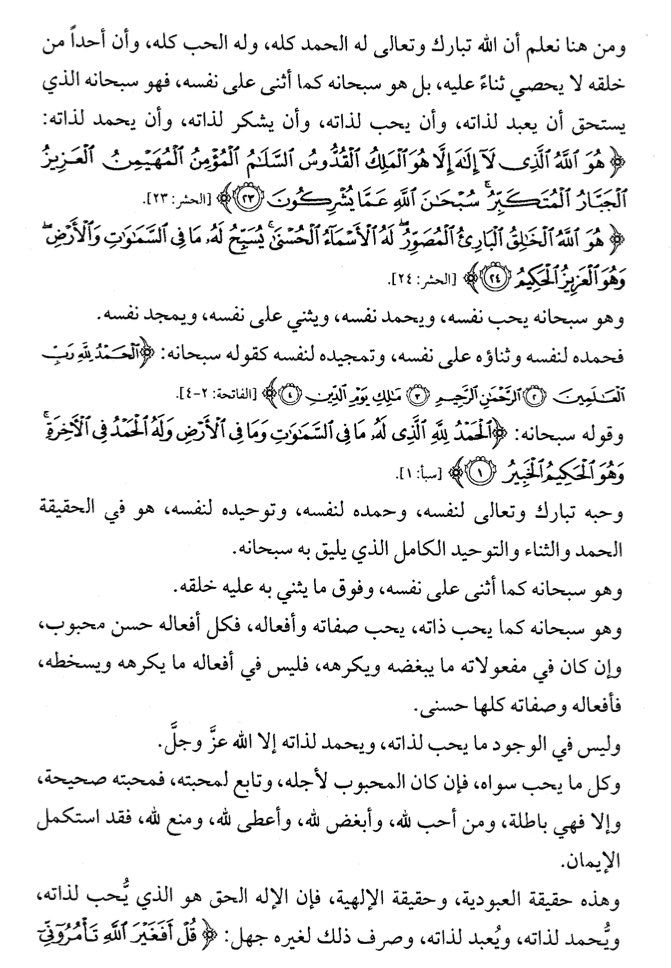 ومن هنا نعلم أن الله تبارك وتعالى له الحمد كله، وله الحب كله، وأن أحداً من
خلقه لا يحصي ثناءً عليه، بل هو سبحانه كما أثنى على نفسه، فهو سبحانه الذي
يستحق أن يعبد لذاته، وأن يحب لذاته، وأن يشكر لذاته، وأن يحمد لذاته:
﴿هُوَ اللَّهُ الَّذِي لَا إِلَٰهَ إِلَّا هُوَ الْمَلِكُ الْقُدُّوسُ السَّلَامُ الْمُؤْمِنُ الْمُهَيْمِنُ الْعَزِيزُ
الْجَبَّارُ الْمُتَكَبِّرُ ۚ سُبْحَانَ اللَّهِ عَمَّا يُشْرِكُونَ ٢٣﴾ [الحشر: ٢٣].
﴿هُوَ اللَّهُ الْخَالِقُ الْبَارِئُ الْمُصَوِّرُ ۖ لَهُ الْأَسْمَاءُ الْحُسْنَىٰ ۚ يُسَبِّحُ لَهُ مَا فِي السَّمَاوَاتِ وَالْأَرْضِ ۖ
وَهُوَ الْعَزِيزُ الْحَكِيمُ ٢٤﴾ [الحشر: ٢٤].
وهو سبحانه يحب نفسه، ويحمد نفسه، ويثني على نفسه، ويمجد نفسه.
فحمده لنفسه وثناؤه على نفسه، وتمجيده لنفسه كقوله سبحانه: ﴿الْحَمْدُ لِلَّهِ رَبِّ
الْعَالَمِينَ ٢ الرَّحْمَٰنِ الرَّحِيمِ ٣ مَالِكِ يَوْمِ الدِّينِ ٤﴾ [الفاتحة: ٢-٤].
وقوله سبحانه: ﴿الْحَمْدُ لِلَّهِ الَّذِي لَهُ مَا فِي السَّمَاوَاتِ وَمَا فِي الْأَرْضِ وَلَهُ الْحَمْدُ فِي الْآخِرَةِ ۚ
وَهُوَ الْحَكِيمُ الْخَبِيرُ ١﴾ [سبأ: ١].
وحبه تبارك وتعالى لنفسه، وحمده لنفسه، وتوحيده لنفسه، هو في الحقيقة
الحمد والثناء والتوحيد الكامل الذي يليق به سبحانه.
وهو سبحانه كما أثنى على نفسه، وفوق ما يثني به عليه خلقه.
وهو سبحانه كما يحب ذاته، يحب صفاته وأفعاله، فكل أفعاله حسن محبوب،
وإن كان في مفعولاته ما يبغضه ويكرهه، فليس في أفعاله ما يكرهه ويسخطه،
فأفعاله وصفاته كلها حسنى.
وليس في الوجود ما يحب لذاته، ويحمد لذاته إلا الله عزَّ وجلَّ.
وكل ما يحب سواه، فإن كان المحبوب لأجله، وتابع لمحبته، فمحبته صحيحة،
وإلا فهي باطلة، ومن أحب لله، وأبغض لله، وأعطى لله، ومنع لله، فقد استكمل
الإيمان.
وهذه حقيقة العبودية، وحقيقة الإلهية، فإن الإله الحق هو الذي يُّحب لذاته،
ويُّحمد لذاته، ويُعبد لذاته، وصرف ذلك لغيره جهل: ﴿قُلْ أَفَغَيْرَ اللَّهِ تَأْمُرُونِّي